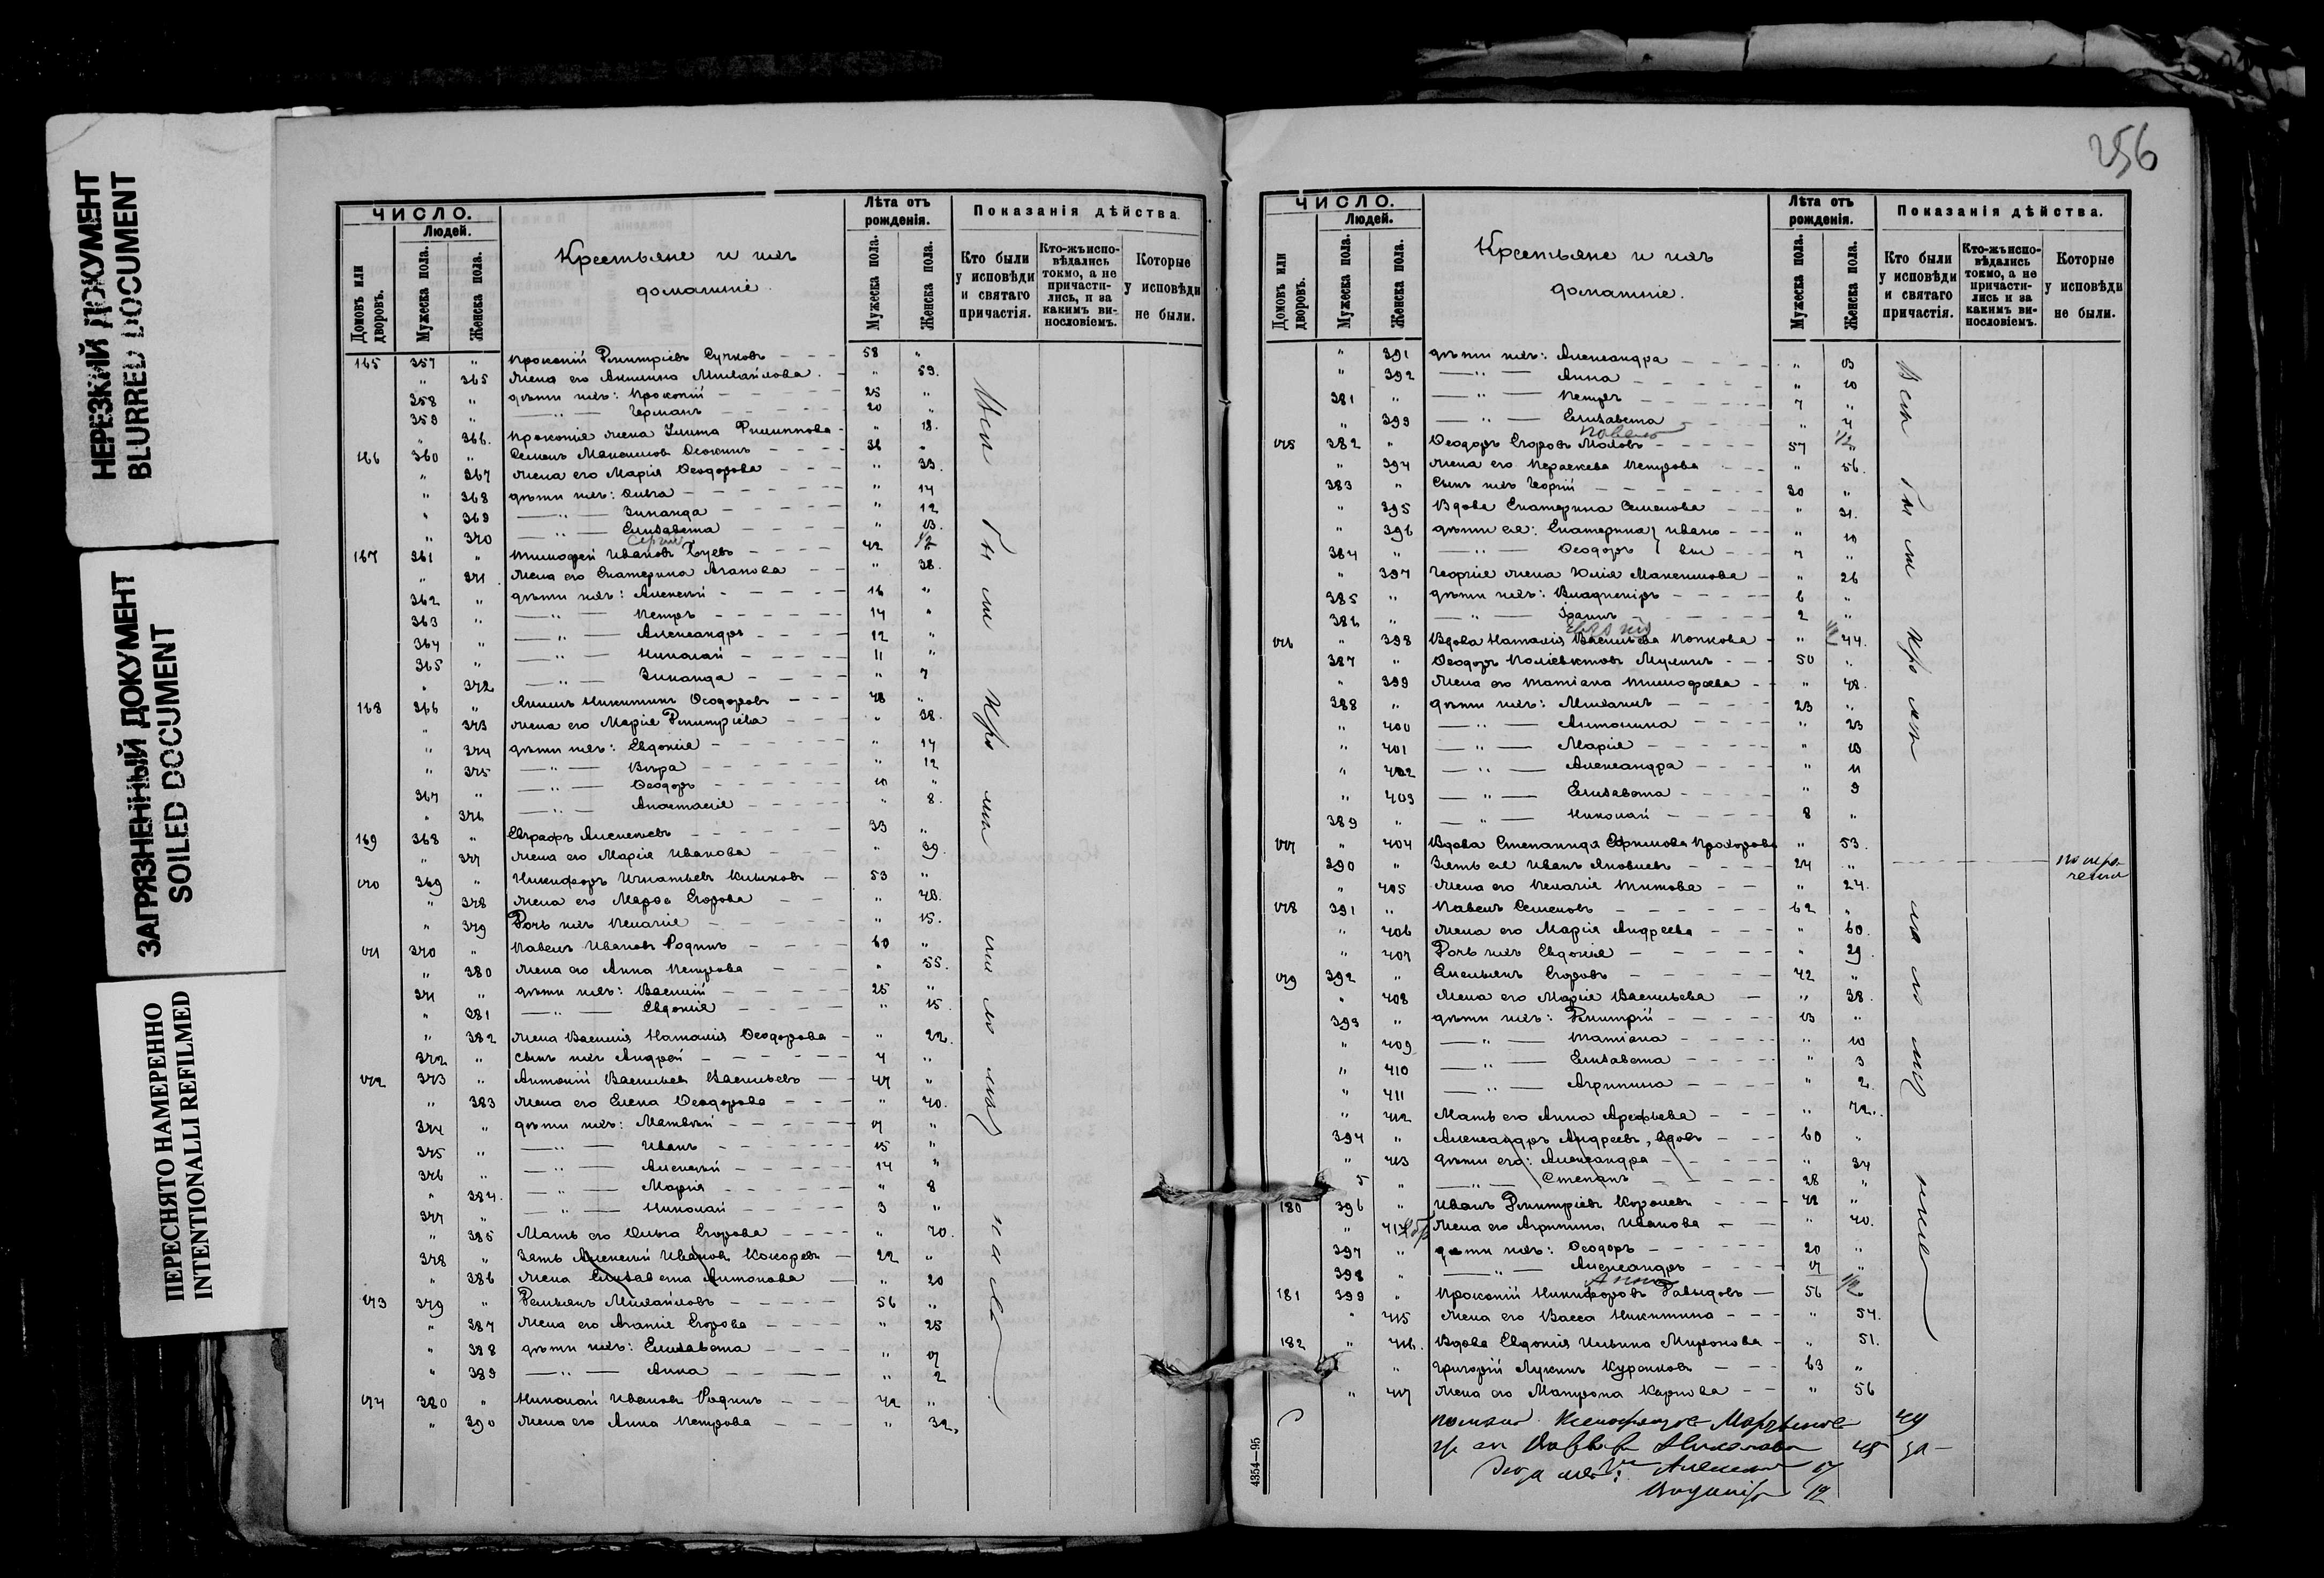 НЕРЕЗКИЙ ДОКУМЕНТ
BLURRED DOCUMENT
ЗАГРЯЗНЕННЫЙ ДОКУМЕНТ
SOILED DOCUMENT
ПЕРЕСНЯТО НАМЕРЕННО
INTENTIONALLI REFILMED
ЧИСЛО.
Людей.
Домовъ или дворовъ.
Мужеска пола.
Женска пола.
Крестьяне и ихъ
домашніе.
Лѣта отъ рожденія.
Мужеска пола.
Женска пола.
Показанія дѣйства.
Кто были у исповѣди и святаго причастія.
Кто-жъ исповѣдались токмо, а не причастились, и за какимъ винословіемъ.
Которые у исповѣди не были.
165 357 " Прокопій Димитріевъ Сучковъ 58 "
" 365 Жена его Акилина Михайлова " 59.
358 " дѣти ихъ: Прокопій 25 "
359 " —"— Германъ 20 "
" 366. Прокопія жена Улита Филиппова " 18.
166 360 " Семенъ Максимовъ 36 "
" 367 Жена его Марія Ѳеодорова " 33.
" 368 дѣти ихъ: Ольга " 14
" 369 —"— Зинаида " 12
" 370 —"— Елисавета "
Сергій 1/2
167 361 " Тимоѳей Ивановъ 42
" 371 Жена его Екатерина Агапова " 38.
362 " дѣти ихъ: Алексѣй 16 "
363 " —"— Петръ 14 "
364 " —"— Александръ 12 "
365 " —"— Николай 11 "
" 372 —"— Зинаида " 7
168 366 " Акимъ Никитинъ Ѳеодоровъ 48 "
" 373 Жена его Марія Димитріева " 38.
" 374 дѣти ихъ: Евдокія " 14
" 375 —"— Вѣра " 12
367 " —"— Ѳеодоръ 10 "
" 376 —"— Анастасія " 8.
169 368 " Евграфъ Алексѣевъ 33 "
" 377 Жена его Марія Иванова " 39.
170 369 " Никифоръ Игнатьевъ 53 "
" 378 Жена его Марѳа Егорова " 48.
" 379 Дочь ихъ Пелагія " 15.
171 370 " Павелъ Ивановъ Родинъ 60 "
" 380 Жена его Анна Петрова " 55.
371 " дѣти ихъ: Василій 25 "
" 381 —"— Евдокія " 15
" 382 Жена Василія Наталія Ѳеодорова " 22.
372 " сынъ ихъ Андрей 4 "
172 373 " Антоній Васильевъ Васильевъ 47 "
" 383 Жена его Елена Ѳеодорова " 40.
374 " дѣти ихъ: Матвѣй 17 "
375 " —"— Иванъ 15 "
376 " —"— Алексѣй 14 "
" 384. —"— Марія " 8
377 " —"— Николай 3 "
" 385 Мать его Ольга Егорова " 70.
378 " Зять Алексѣй Ивановъ Кокоревъ 22 "
" 386 Жена Елисавета Антонова " 20
173 379 " Демьянъ Михайловъ 56 "
" 387 Жена его Агапія Егорова " 25
" 388 дѣти ихъ: Елисавета " 17
" 389 —"— Анна " 2
174 380 " Николай Ивановъ Родинъ 42 "
" 390 Жена его Анна Петрова " 32.
256
ЧИСЛО.
Людей.
Домовъ или дворовъ.
Мужеска пола.
Женска пола.
Крестьяне и ихъ
домашніе.
Лѣта отъ рожденія.
Мужеска пола.
Женска пола.
Показанія дѣйства.
Кто были у исповѣди и святаго причастія.
Кто-жъ исповѣдались токмо, а не причастились и за какимъ винословіемъ.
Которые у исповѣди не были.
" 391 дѣти ихъ: Александра " 13
" 392 —"— Анна " 10
381 " —"— Петръ 7 "
" 393 —"— Елисавета " 4
Павелъ 1/2
175 382 " Ѳеодоръ Егоровъ 57 "
" 394 Жена его Параскева Петрова " 56.
383 " Сынъ ихъ Георгій 30 "
" 395 Вдова Екатерина Семенова " 31.
" 396 дѣти ея: Екатерина " 10
384 " —"— Ѳеодоръ 7 "
" 397 Георгія жена Юлія Максимова " 26
385 " дѣти ихъ: Владиміръ 6 "
386 " —"— Іоаннъ 2 "
176 " 398 Вдова Наталія Васильева Попкова " 44.
387 " Ѳеодоръ Поліевктовъ 50 "
" 399 Жена его Татіана Тимоѳеева " 48.
388 " дѣти ихъ: Михаилъ 23 "
" 400 —"— Антонина " 23
" 401 —"— Марія " 13
" 402 —"— Александра " 11
" 403 —"— Елисавета " 9
389 " —"— Николай 8 "
177 " 404 Вдова Степанида Ефимова Прохорова " 53.
390 " Зять ея Иванъ Яковлевъ 24 "
" 405 Жена его Пелагія Титова " 24.
178 391 " Павелъ Семеновъ 62 "
" 406 Жена его Марія Андреева " 60.
" 407 Дочь ихъ Евдокія " 29
179 392 " Емельянъ Егоровъ 42 "
" 408 Жена его Марія Васильева " 38.
393 " дѣти ихъ: Димитрій 13 "
" 409 —"— Татіана " 10
" 410 —"— Елисавета " 3
" 411 —"— Агрипина " 2.
" 412 Мать его Анна Арефьева " 72.
394 " Александръ Андреевъ, вдовъ 60 "
" 413 дѣти его: Александра " 34
5 " —"— Степанъ 28 "
180 396 " Иванъ Димитріевъ Королевъ 48 "
" 414 Жена его Агрипина Иванова " 40.
397 " дѣти ихъ: Ѳеодоръ 20 "
398 " —"— Александръ 17 "
Анна 1/2
181 399 " Прокопій Никифоровъ Давыдовъ 56 "
" 415 Жена его Васса Никитина " 54.
182 " 416. Вдова Евдокія Ильина Миронова " 51.
" Григорій Лукинъ 63 "
" 417 Жена его Матрона Карпова " 56
4354—95